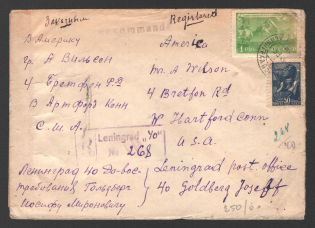 Заказным Registered
В Америку America
гр. А Вильсон Mr. A Wilson
4 Бретфон Рд 4 Bretfon Rd
В Артфорд Конн W Hartford Conn
С.Ш.А. U.S.A.
Leningrad „40"
№ 268
Ленинград 40 До-вос- Leningrad post office
требования Гольдберг 40 Goldberg Joseff
Иосифу Мироновичу
268